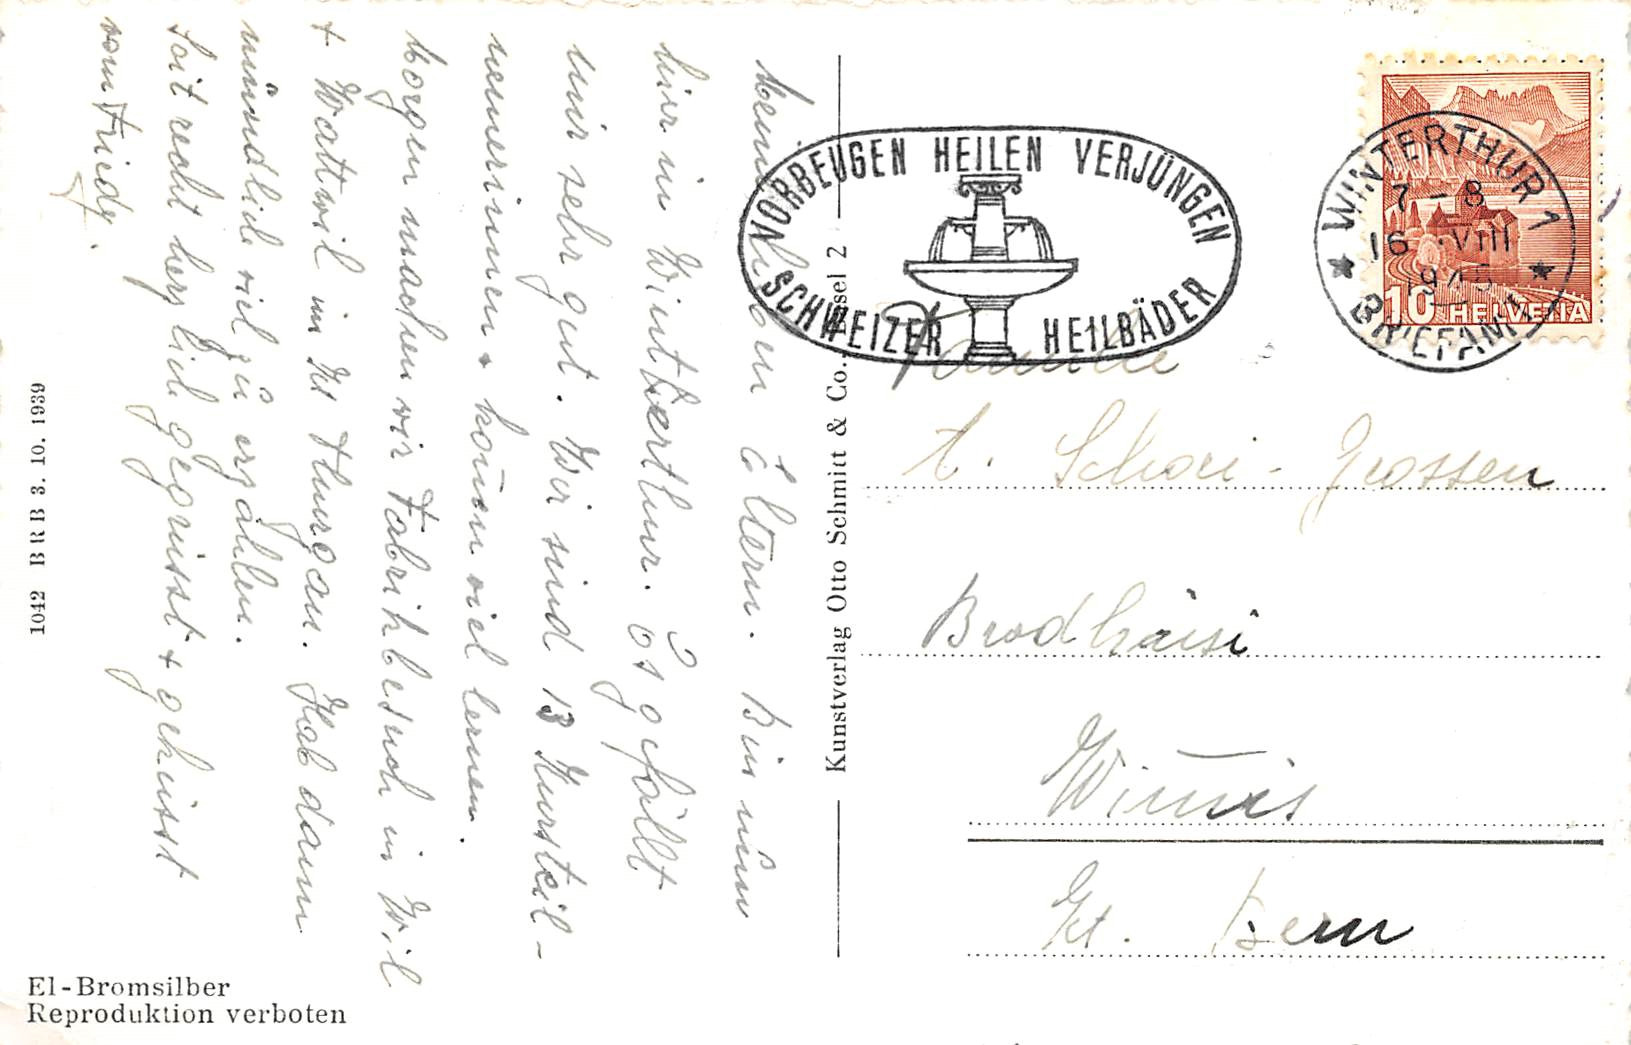 Meine lieben Eltern. Bin nun
hier in Winterthur. Es gefällt
mir sehr gut. Wir sind 13 Kursteil-
nemerinnen + könen viel lernen.
Morgen machen wir Fabrikbesuch in Wil
+ Wattwil im Kt Thurgau. Hab dann
mündlich viel zu erzählen.
Seit recht herzlich gegrüsst + geküsst
vom Friedy.
VORBEUGEN HEILEN VERJÜNGEN
SCHWEIZER HEILBÄDER
WINTERTHUR 1
7-8
16.VIII
1945
BRIEFAMT
10 HELVETIA
Familie
A. Schori-Grossen
Brodhäusi
Wimmis
Kt. Bern
Kunstverlag Otto Schmitt & Co. Basel 2
1042 BRB 3. 10. 1939
El-Bromsilber
Reproduktion verboten